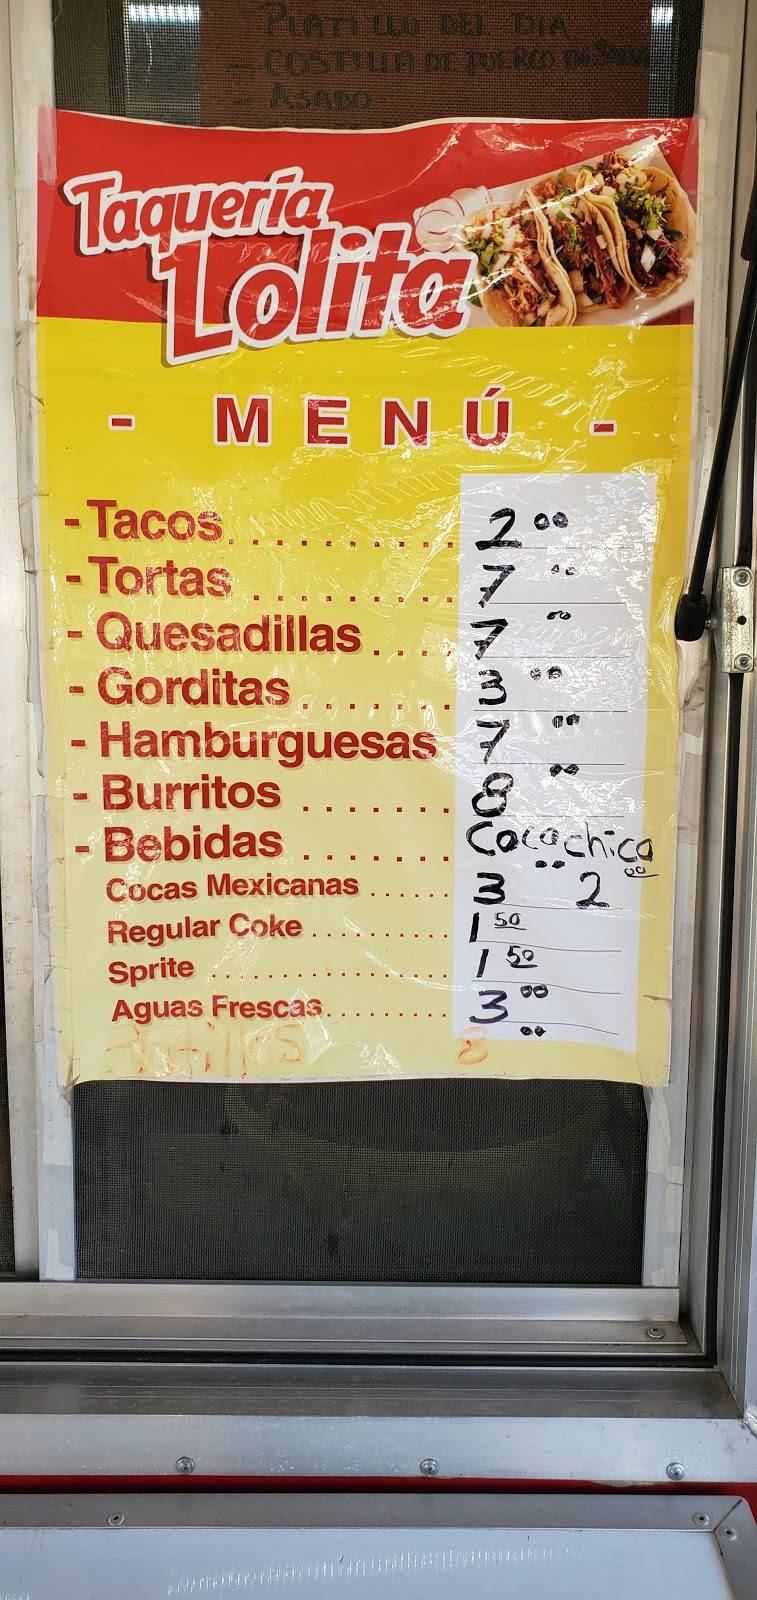 PLATILLO DEL DIA
- COSTILLA DE PUERCO EN SALSA
- ASADO
Taquería
Lolita
- MENÚ -
- Tacos . . . . . . . . . . 2 00
- Tortas . . . . . . . . . 7 00
- Quesadillas . . . . 7 00
- Gorditas . . . . . . . 3 00
- Hamburguesas 7 00
- Burritos . . . . . . . 8 00
- Bebidas . . . . . . . Coca chica
Cocas Mexicanas . . . . . . 3 00 2 00
Regular Coke . . . . . . . . . . 1 50
Sprite . . . . . . . . . . . . . . . . . 1 50
Aguas Frescas . . . . . . . . . 3 00
8 00